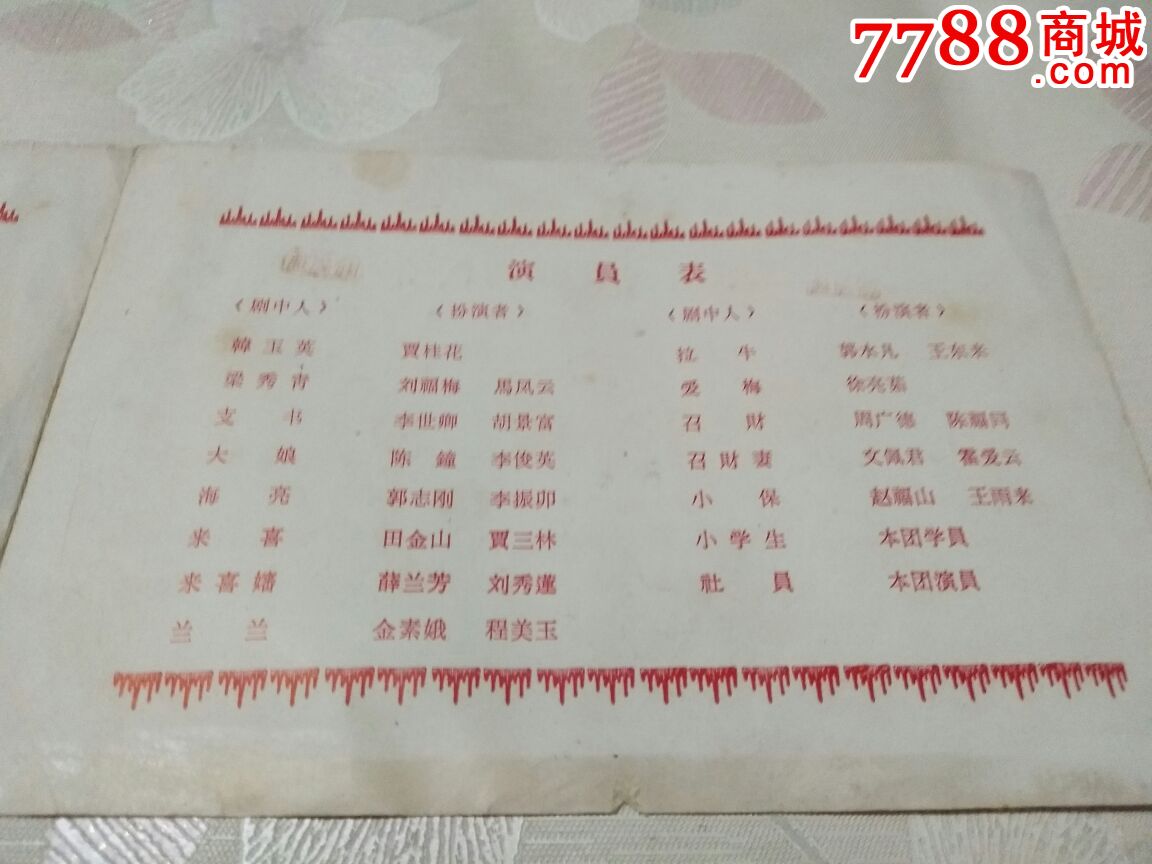 7788商城
.com
演員表
（剧中人） （扮演者） （剧中人） （扮演者）
韓玉英 賈桂花 拉牛 王东来
梁秀青 刘福梅 馬凤云 爱梅
支书 李世卿 胡景富 召財 周广德
大娘 陈鐘 李俊英 召財妻 文佩君 霍爱云
海亮 郭志刚 李振卯 小保 赵福山 王雨来
来喜 田金山 賈三林 小学生 本团学員
来喜嬸 薛兰芳 刘秀蓮 社員 本团演員
兰兰 金素娥 程美玉